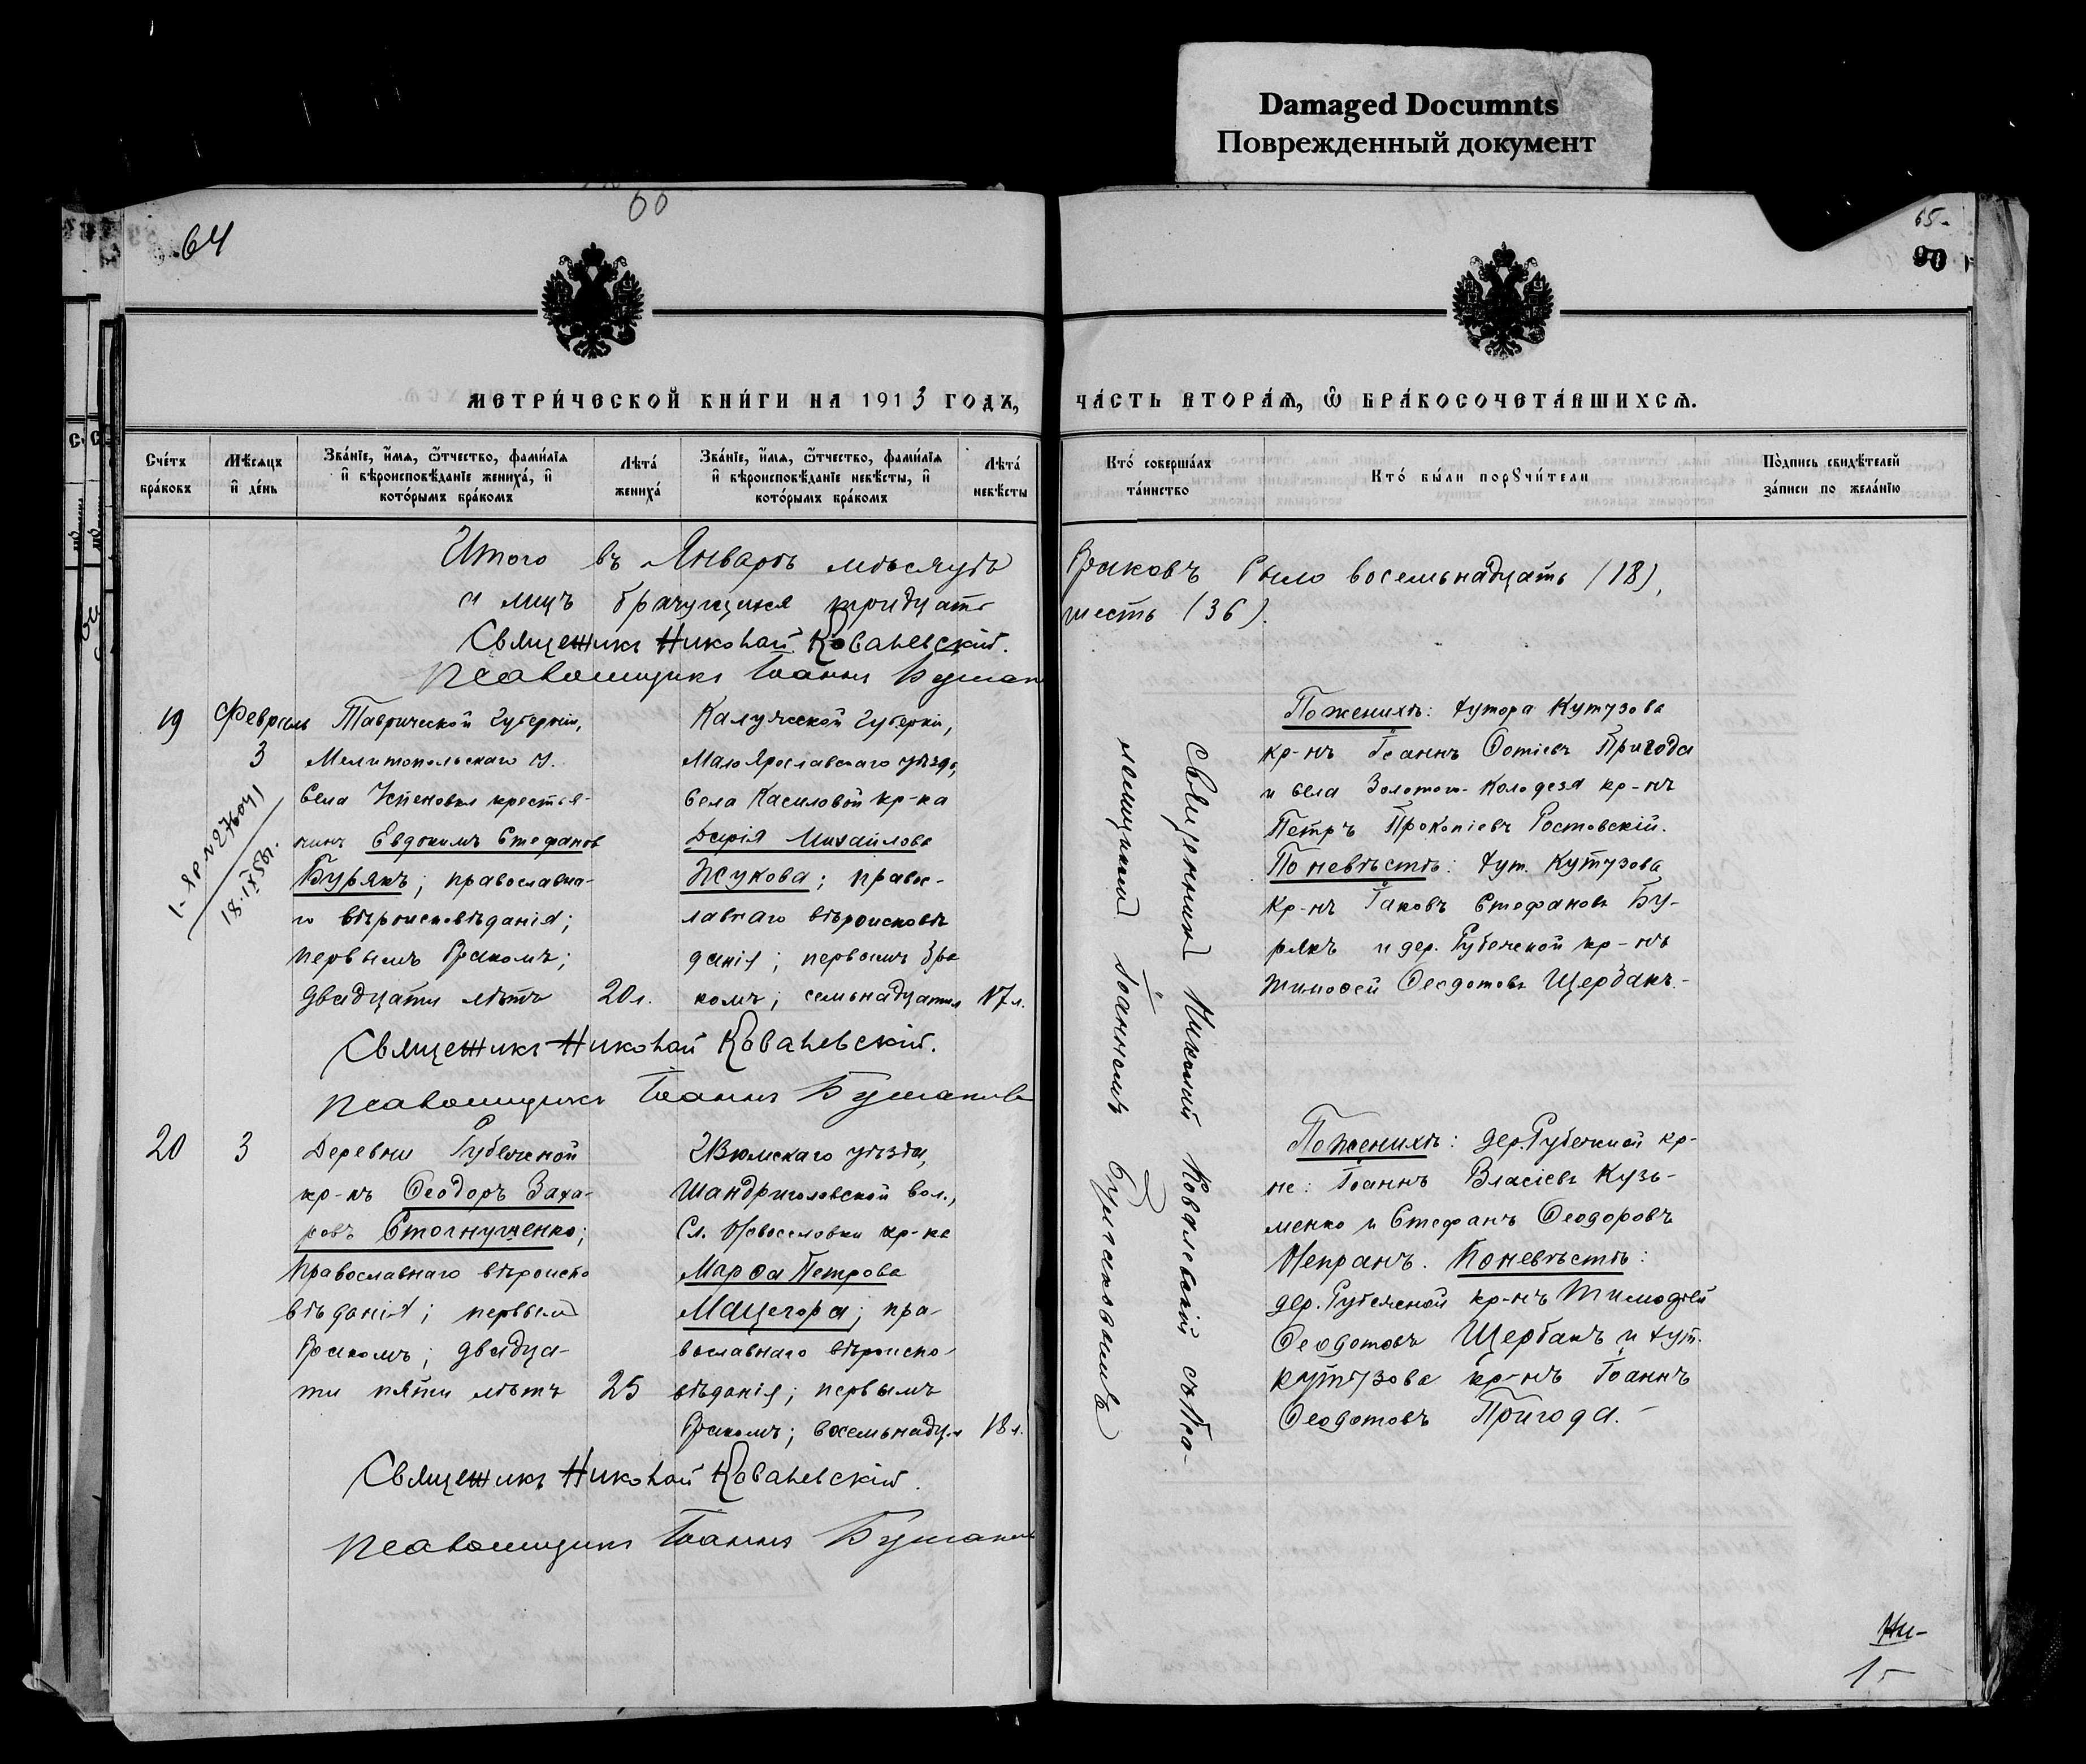 Damaged Documnts
Поврежденный документ
60
64
65-
90
МЕТРИ́ЧЕСКОЙ КНИ́ГИ НА 1913 ГОДЪ,
ЧА́СТЬ ВТОРА́Ѧ, Ѽ БРА́КОСОЧЕТА́ВШИХСѦ.
Сче́тъ бра́ковъ
Мѣ́сяцъ и҆ де́нь
Зва́нїе, и҆́мя, ѻ҆́тчество, фами́лїя и҆ вѣроисповѣ́данїе жениха̀, и҆ кото́рымъ бра́комъ
Лѣта̀ жениха̀
Зва́нїе, и҆́мя, ѻ҆́тчество, фами́лїя и҆ вѣроисповѣ́данїе невѣ́сты, и҆ кото́рымъ бра́комъ
Лѣта̀ невѣ́сты
Кто̀ соверша́лъ та́инство
Кто̀ бы́ли порꙋчи́тели
По́дпись свидѣ́телей за́писи по жела́нїю
Итого въ Январѣ мѣсяцѣ
браковъ было восемьнадцать (18),
и лицъ брачущихся тридцать
шесть (36).
Священникъ Николай Ковалевскій.
Псаломщикъ Іоаннъ
19
Февраль
3
1-ЯР № 276041
18.IX 58г.
Таврической губерніи,
Мелитопольскаго у.
села Успеновки крестья-
нинъ Евдокимъ Стефановъ
Бурякъ; православна-
го вѣроисповѣданія;
первымъ бракомъ;
двадцати лѣтъ
20 л.
Калужской губерніи,
Мало Ярославскаго уѣзда,
села Касиловой кр-ка
Дарія Михайлова
Жукова; правос-
лавнаго вѣроисповѣ
данія; первымъ бра
комъ; семьнадцати
17 л.
Священникъ Николай Ковалевскій.
Псаломщикъ Іоаннъ
Священникъ Николай Ковалевскій съ Пса-
ломщикомъ Іоанномъ
По женихѣ: хутора Кутузова
кр-нъ Іоаннъ Ѳотіевъ Пригода
и села Золотого-Колодезя кр-нъ
Петръ Прокопіевъ Ростовскій.
По невѣстѣ: хут. Кутузова
кр-нъ Іаковъ Стефановъ Бу-
рякъ и дер. Рубежной кр-нъ
Тимоѳей Ѳеодотовъ Щербакъ.-
20
3
Деревни Рубежной
кр-нъ Ѳеодоръ Заха-
ровъ Стогнушенко;
православнаго вѣроиспо
вѣданія; первымъ
бракомъ; двадца-
ти пяти лѣтъ
25
Изюмскаго уѣзда,
Шандриголовской вол.,
Сл. Новоселовки кр-ка
Марѳа Петрова
Мацегора; пра-
вославнаго вѣроиспо-
вѣданія; первымъ
бракомъ; восемьнадц.
18 л.
Священникъ Николай Ковалевскій.
Псаломщикъ Іоаннъ
По женихѣ: дер. Рубежной кр-
не: Іоаннъ Власіевъ Кузь-
менко и Стефанъ Ѳеодоровъ
Непранъ. По невѣстѣ:
дер. Рубежной кр-нъ Тимоѳей
Ѳеодотовъ Щербакъ и хут.
Кутузова кр-нъ Іоаннъ
Ѳеодотовъ Пригода.-